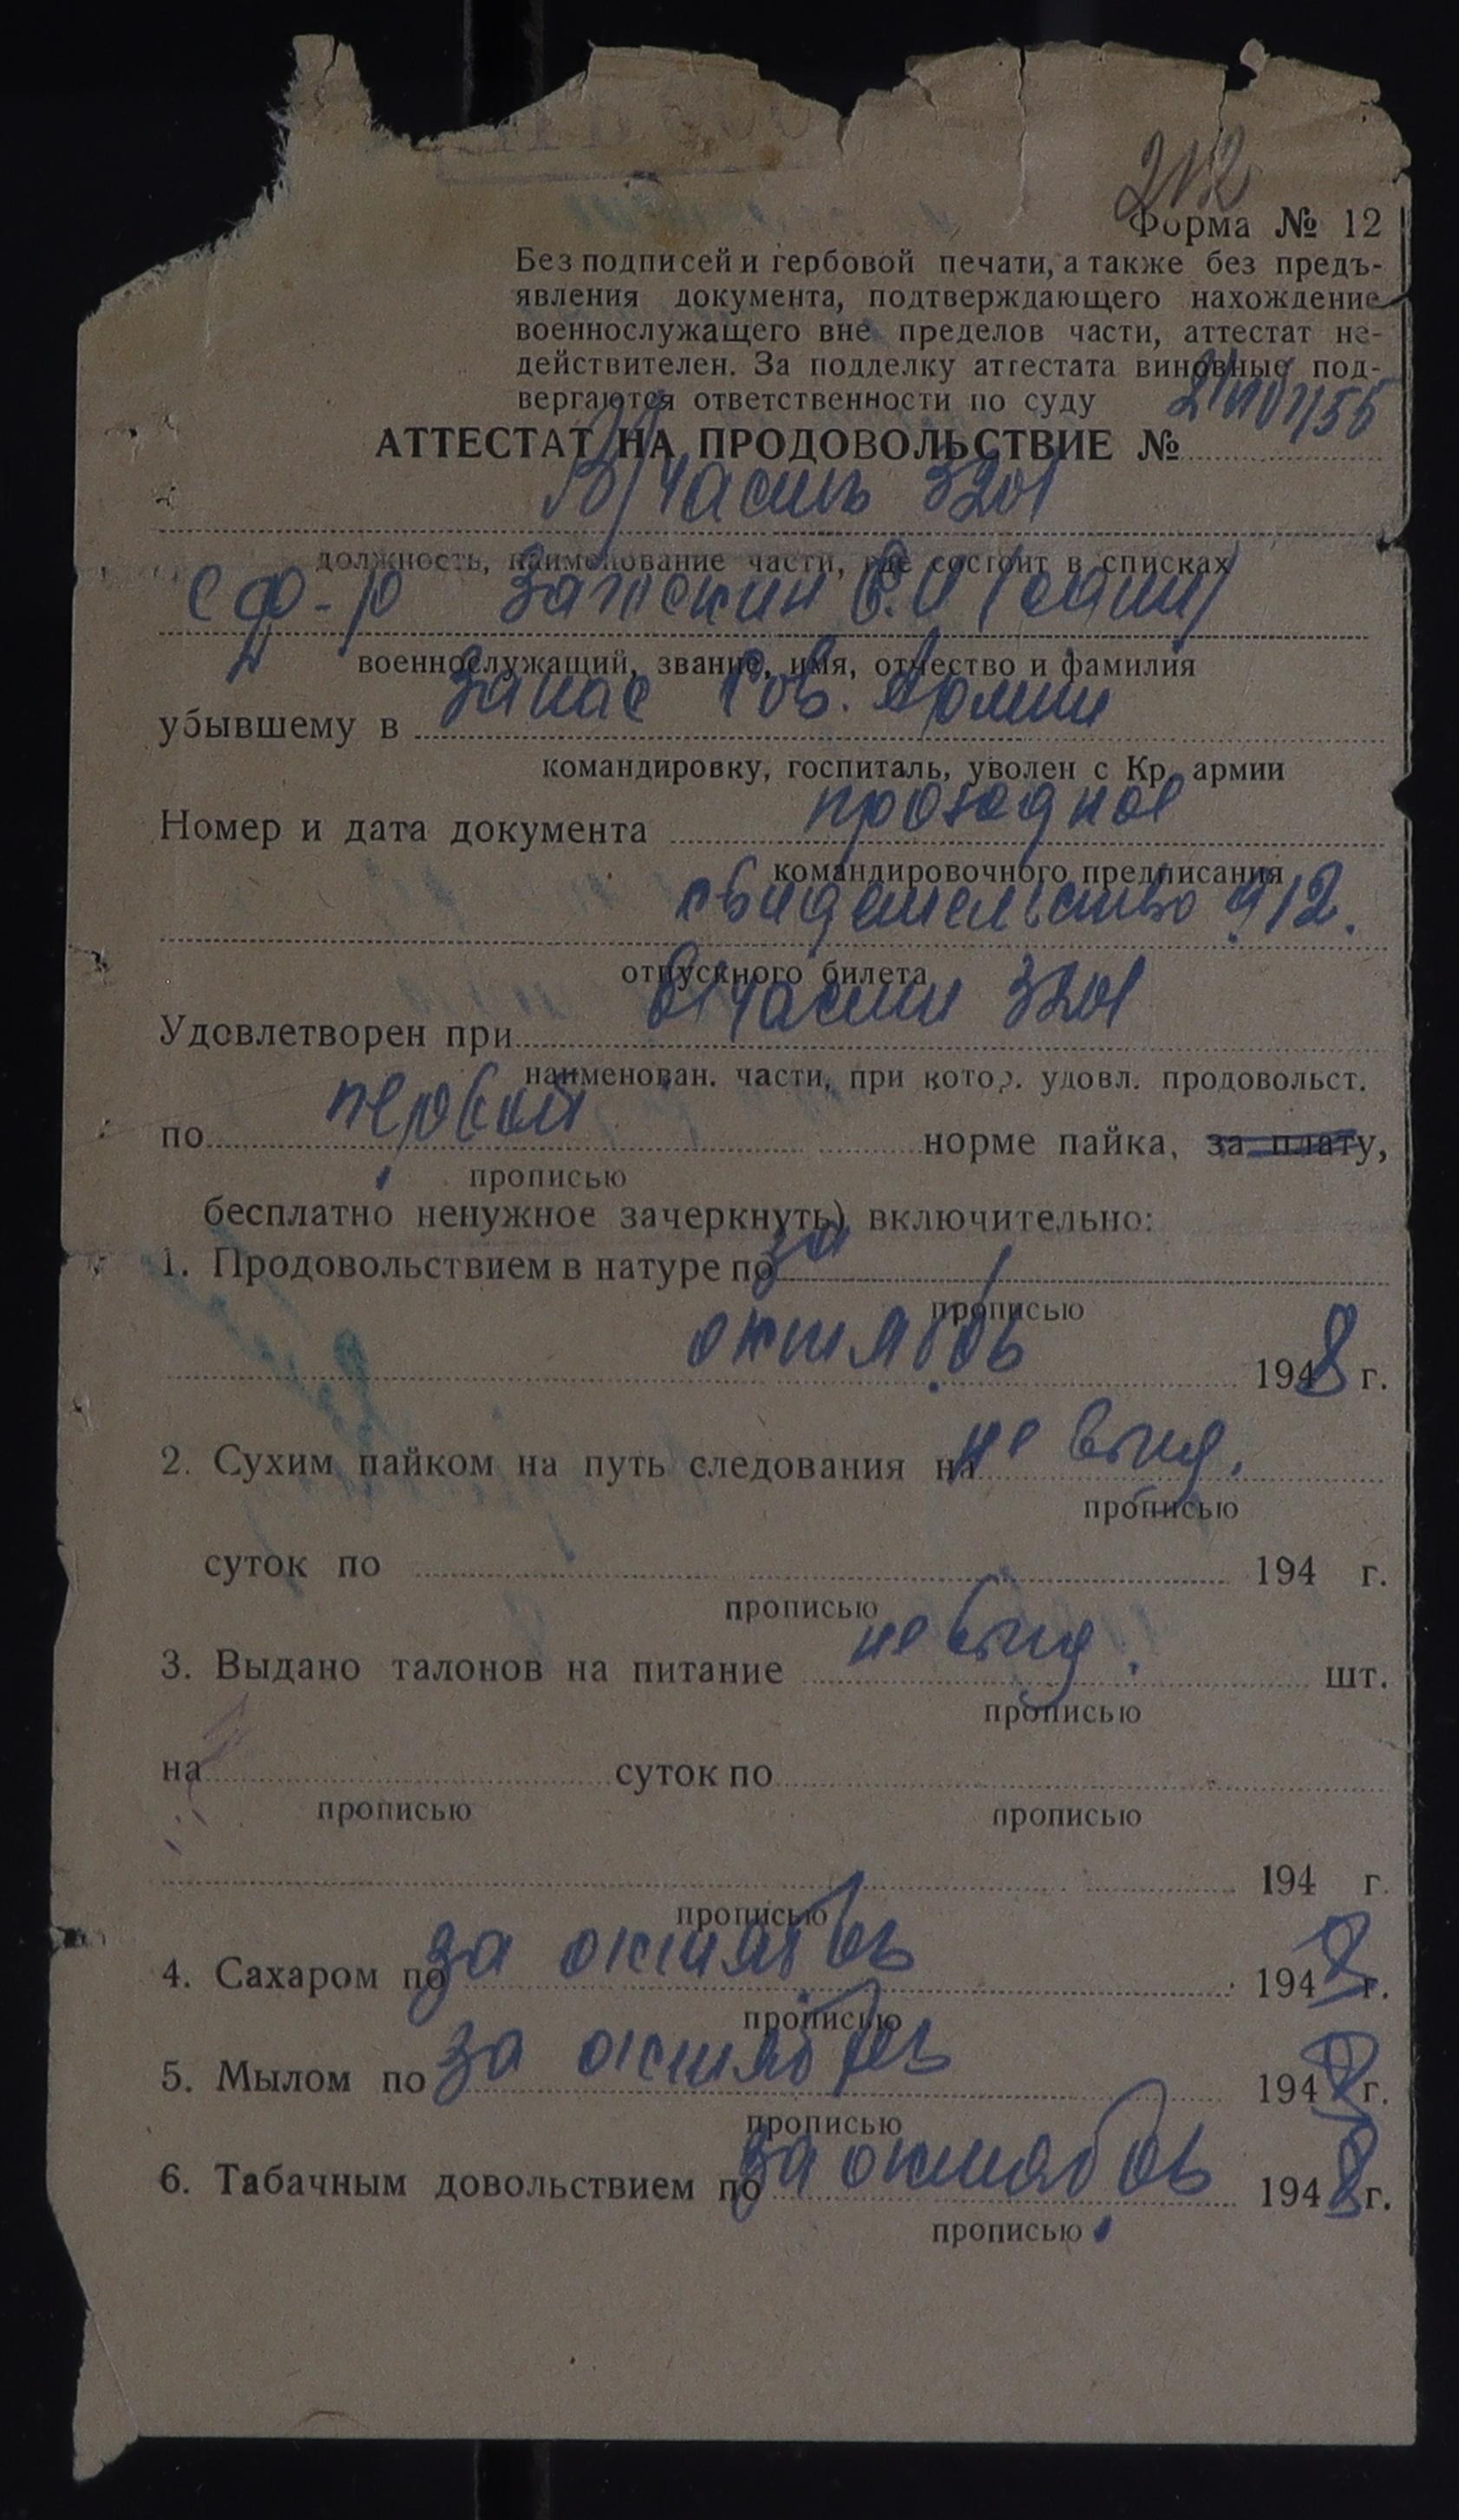 212
Форма № 12
Без подписей и гербовой печати, а также без предъ-
явления документа, подтверждающего нахождение
военнослужащего вне пределов части, аттестат не-
действителен. За подделку аттестата виновные под-
вергаются ответственности по суду
АТТЕСТАТ НА ПРОДОВОЛЬСТВИЕ №
В/часть 3201
должность, наименование части, где состоит в списках
еф-р В.И (один)
военнослужащий, звание, имя, отчество и фамилия
убывшему в запас Сов. Армии
командировку, госпиталь, уволен с Кр. армии
Номер и дата документа проездное
командировочного предписания
свидетельство 912.
отпускного билета
Удовлетворен при в/части 3201
наименован. части, при котор. удовл. продовольст.
по первой норме пайка, за плату,
прописью
бесплатно ненужное зачеркнуть) включительно:
1. Продовольствием в натуре по за
прописью
октябрь 1948 г.
2. Сухим пайком на путь следования на не выд.
прописью
суток по 194 г.
прописью
3. Выдано талонов на питание не выд. шт.
прописью
на суток по
прописью прописью
194 г.
прописью
4. Сахаром по за октябрь 1948 г.
прописью
5. Мылом по за октябрь 1948 г.
прописью
6. Табачным довольствием по за октябрь 1948 г.
прописью